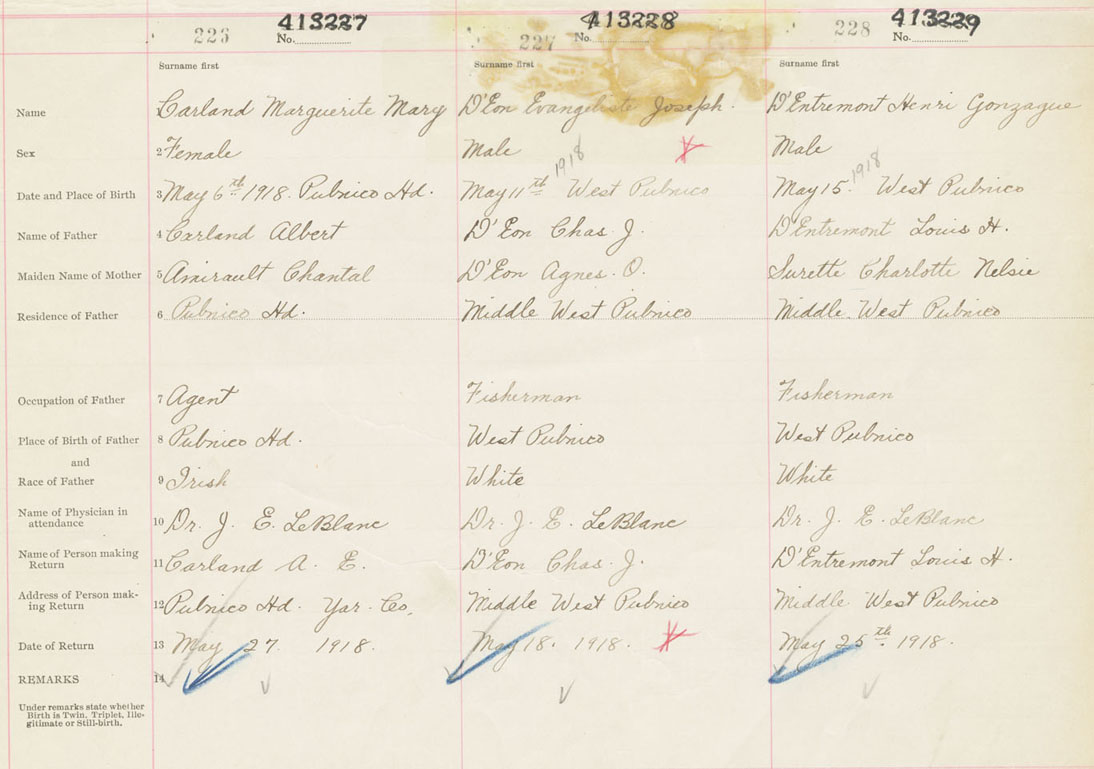 226 413227 227 413228 228 413229
No. No. No.
Surname first Surname first Surname first
Name Carland Marguerite Mary D'Eon Evangeliste Joseph. D'Entremont Henri Gonzague
Sex 2 Female Male Male
1918 1918
Date and Place of Birth 3 May 6th 1918. Pubnico Hd. May 11th West Pubnico May 15. West Pubnico
Name of Father 4 Carland Albert D'Eon Chas. J. D'Entremont Louis H.
Maiden Name of Mother 5 Amirault Chantal D'Eon Agnes. O. Surette Charlotte Nelsie
Residence of Father 6 Pubnico Hd. Middle West Pubnico Middle West Pubnico
Occupation of Father 7 Agent Fisherman Fisherman
Place of Birth of Father 8 Pubnico Hd. West Pubnico West Pubnico
and
Race of Father 9 Irish White White
Name of Physician in
attendance 10 Dr. J. E. LeBlanc Dr. J. E. LeBlanc Dr. J. E. LeBlanc
Name of Person making
Return 11 Carland A. E. D'Eon Chas. J. D'Entremont Louis H.
Address of Person mak-
ing Return 12 Pubnico Hd. Yar. Co. Middle West Pubnico Middle West Pubnico
Date of Return 13 May 27 1918. May 18. 1918. May 25th 1918.
REMARKS 14
Under remarks state whether
Birth is Twin, Triplet, Ille-
gitimate or Still-birth.